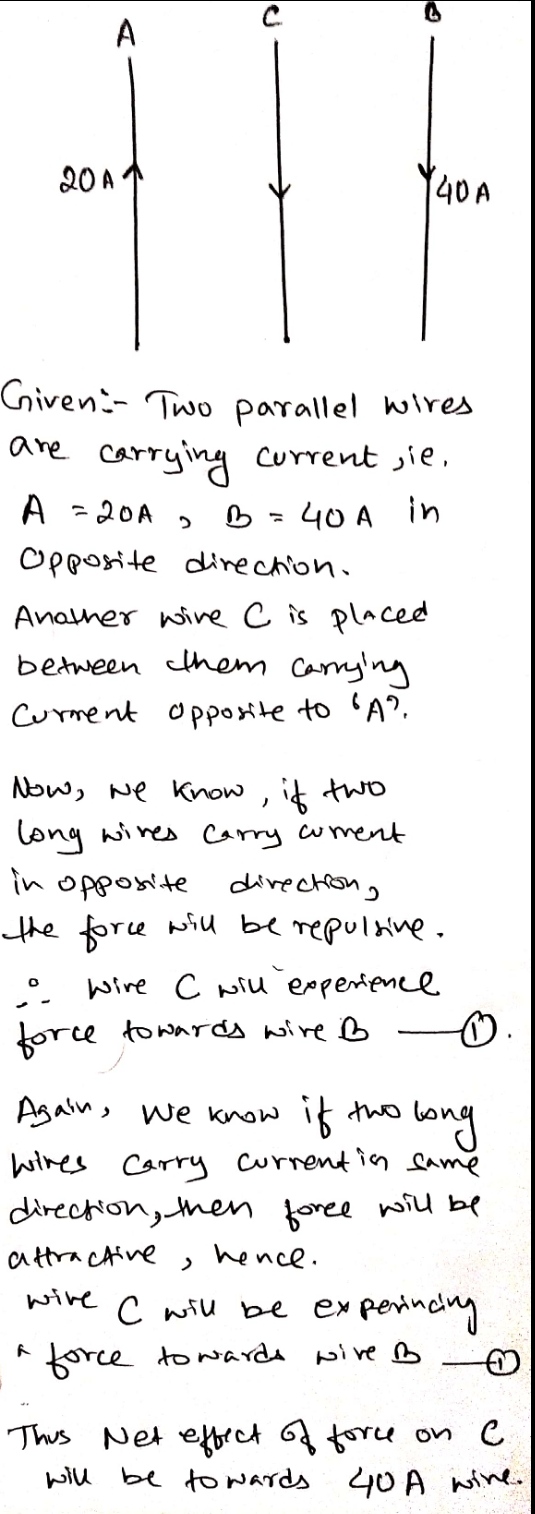 A C B
20 A 40 A
Given:- Two parallel wires
are carrying current, ie.
A = 20A, B = 40 A in
Opposite direction.
Another wire C is placed
between them carrying
Current opposite to 'A'.
Now, we know, if two
long wires carry current
in opposite direction,
the force will be repulsive.
∴ wire C will experience
force towards wire B —①.
Again, we know if two long
wires carry current in same
direction, then force will be
attractive, hence.
wire C will be experincing
a force towards wire B —①
Thus Net effect of force on C
will be towards 40A wire.